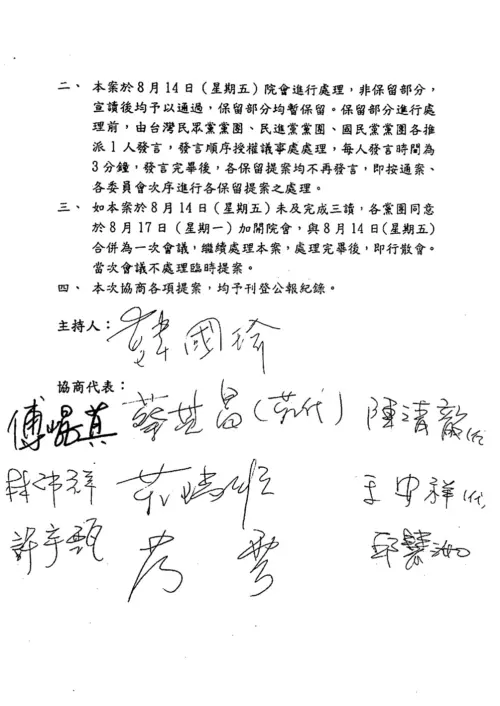 二、本案於8月14日（星期五）院會進行處理，非保留部分，
宣讀後均予以通過，保留部分均暫保留。保留部分進行處
理前，由台灣民眾黨黨團、民進黨黨團、國民黨黨團各推
派1人發言，發言順序授權議事處處理，每人發言時間為
3分鐘，發言完畢後，各保留提案均不再發言，即按通案、
各委員會次序進行各保留提案之處理。
三、如本案於8月14日（星期五）未及完成三讀，各黨團同意
於8月17日（星期一）加開院會，與8月14日(星期五)
合併為一次會議，繼續處理本案，處理完畢後，即行散會。
當次會議不處理臨時提案。
四、本次協商各項提案，均予刊登公報紀錄。
主持人：韓國瑜
協商代表：
傅崐萁 蔡其昌(代) 陳清龍代
林沛祥 王安祥代
許宇甄